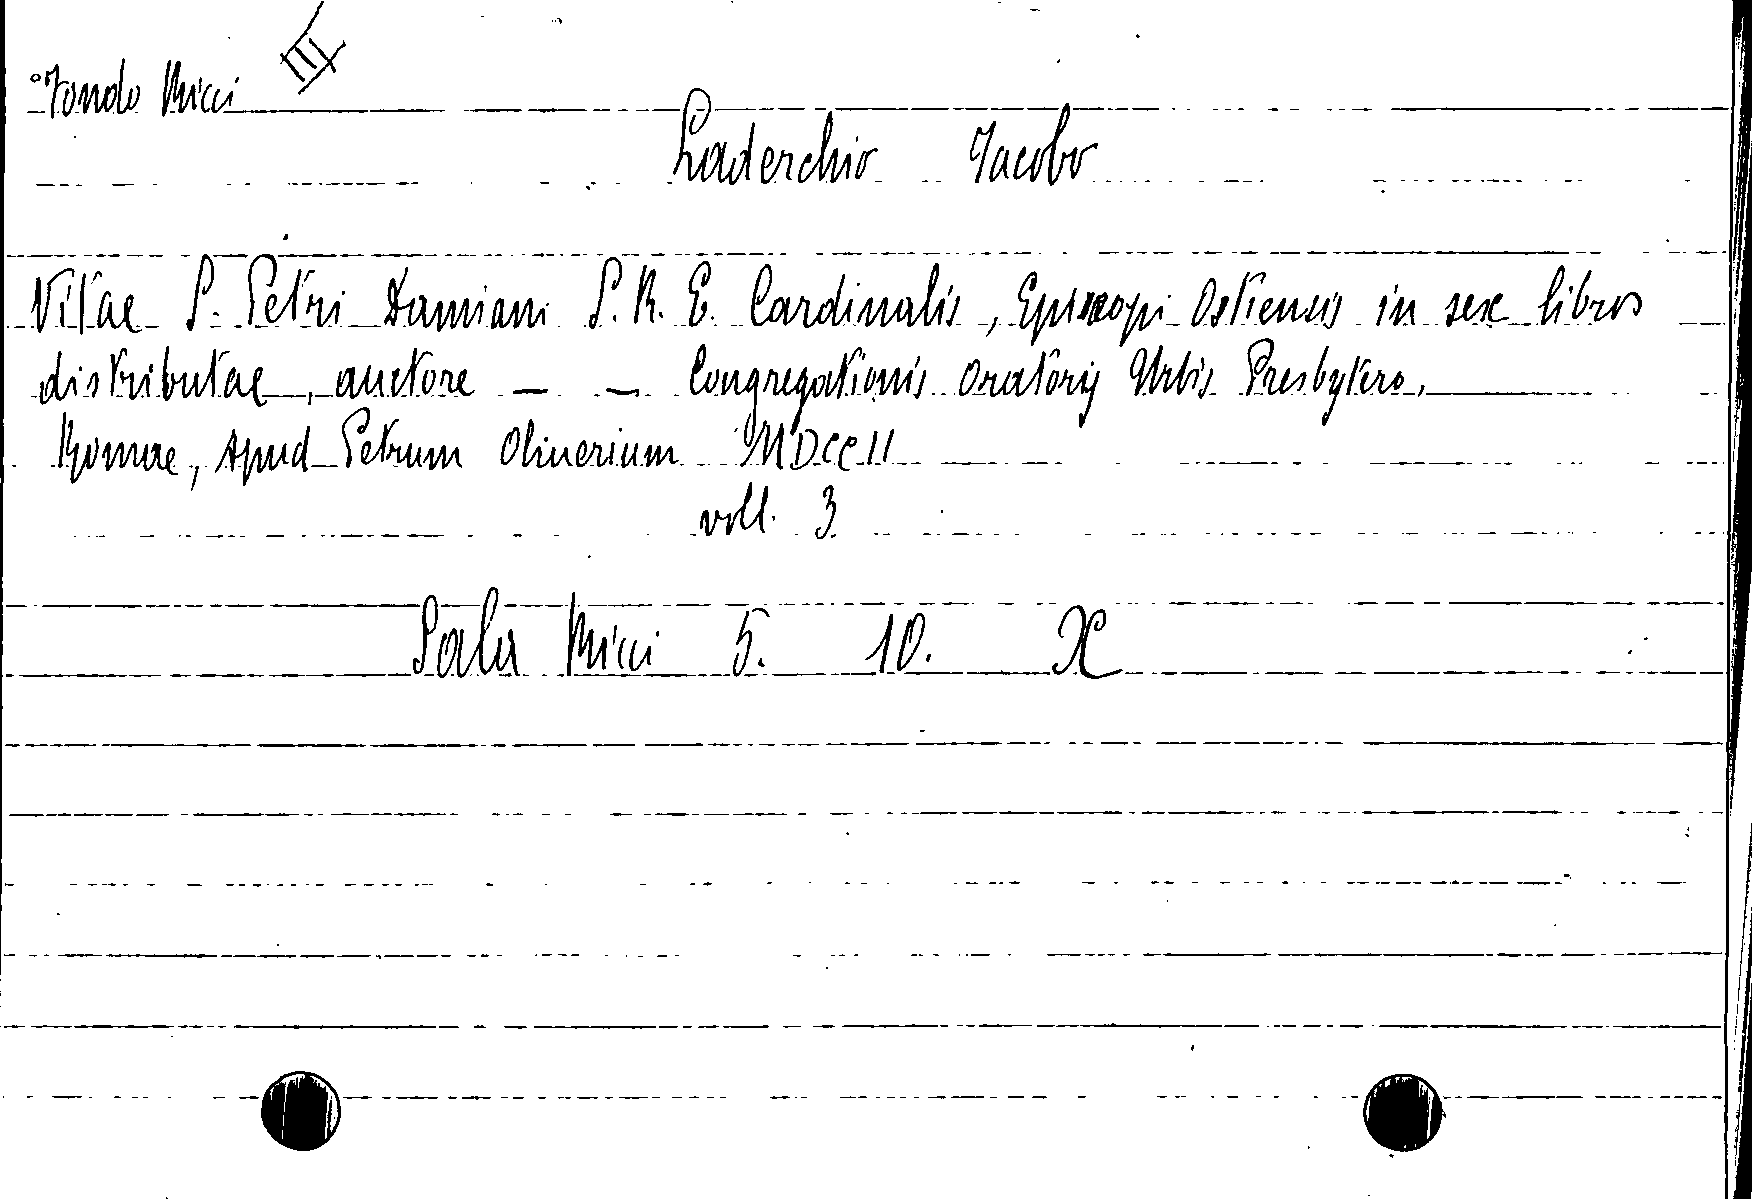 Fondo Ricci III
Laderchio Jacobo
Vitae S. Petri Damiani S. R. E. Cardinalis, Episcopi Ostiensis in sex libros
distributae, auctore — — Congregationis Oratorij Urbis Presbytero.
Romae, apud Petrum Oliuerium MDCCII
voll. 3
Sala Ricci 5. 10. X